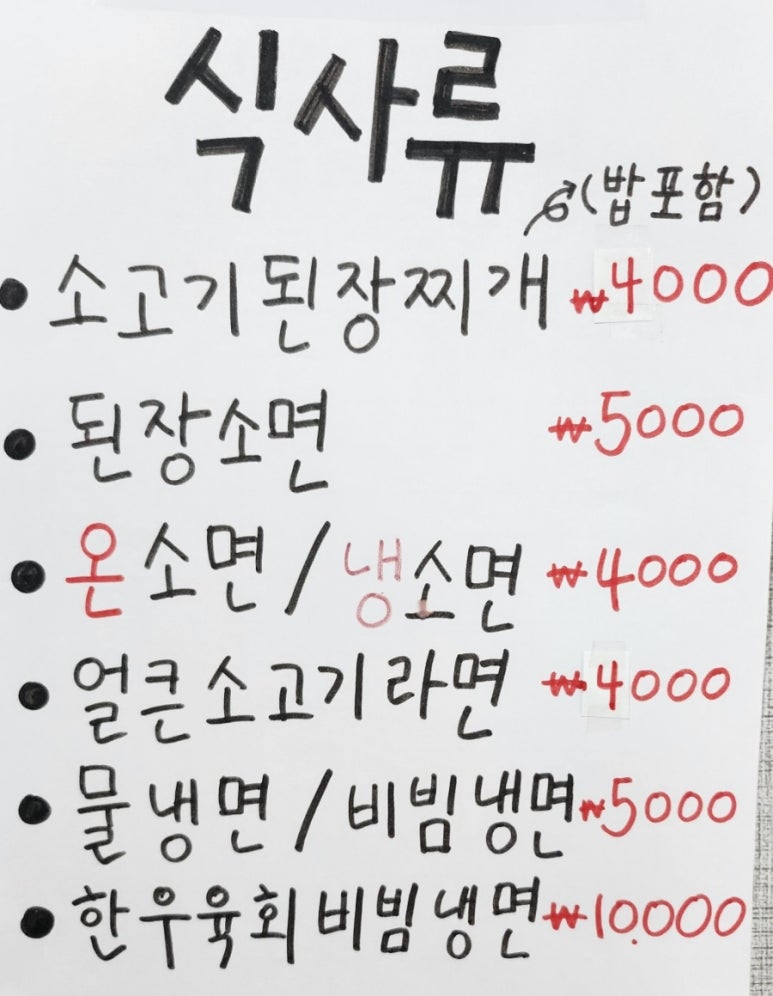 식사류
(밥포함)
• 소고기된장찌개 ₩4000
• 된장소면 ₩5000
• 온소면/냉소면 ₩4000
• 얼큰소고기라면 ₩4000
• 물냉면/비빔냉면 ₩5000
• 한우육회비빔냉면 ₩10.000